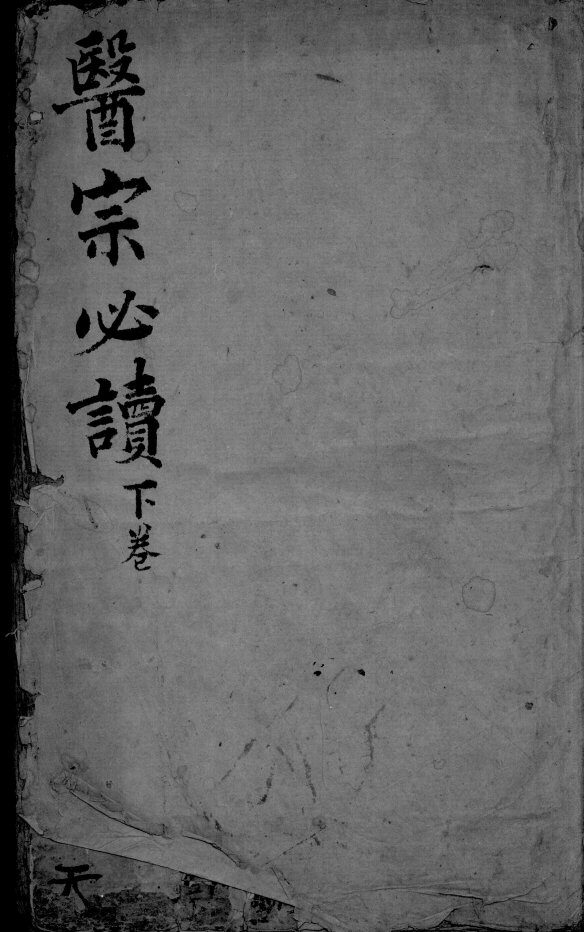 醫宗必讀下卷
天